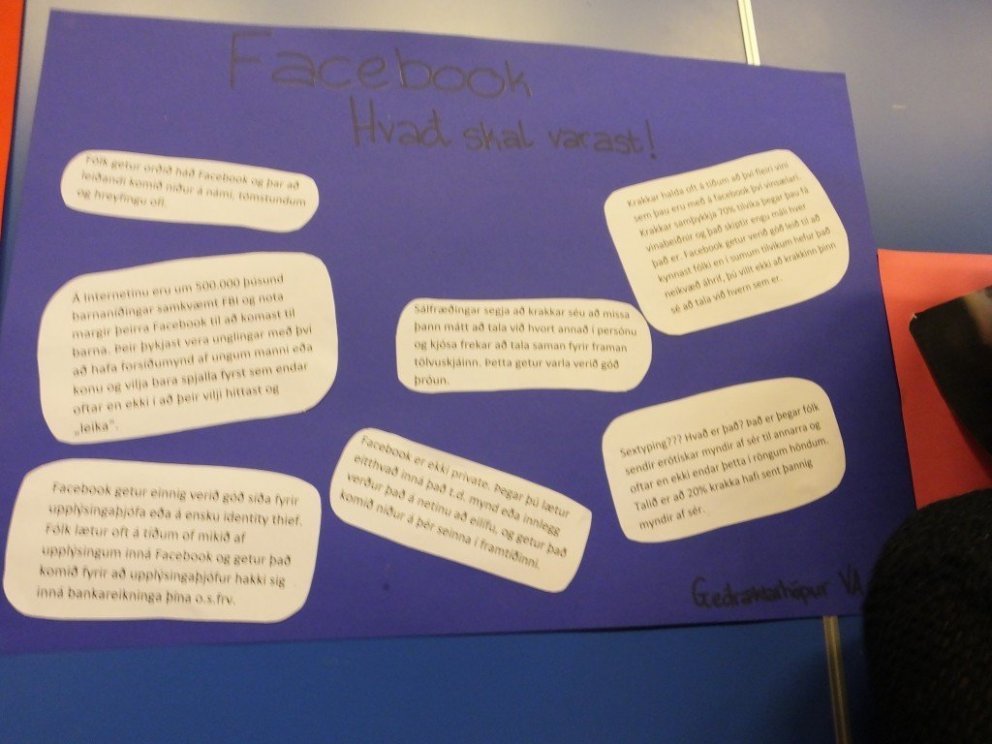 Facebook
Hvað skal varast!
Fólk getur orðið háð Facebook og þar að
leiðandi komið niður á námi, tómstundum
og hreyfingu ofl.
Á Internetinu eru um 500.000 þúsund
barnaníðingar samkvæmt FBI og nota
margir þeirra Facebook til að komast til
barna. Þeir þykjast vera unglingar með því
að hafa forsíðumynd af ungum manni eða
konu og vilja bara spjalla fyrst sem endar
oftar en ekki í að þeir vilji hittast og
„leika“.
Facebook getur einnig verið góð síða fyrir
upplýsingaþjófa eða á ensku identity thief.
Fólk lætur oft á tíðum of mikið af
upplýsingum inná Facebook og getur það
komið fyrir að upplýsingaþjófur hakki sig
inná bankareikninga þína o.s.frv.
Sálfræðingar segja að krakkar séu að missa
þann mátt að tala við hvort annað í persónu
og kjósa frekar að tala saman fyrir framan
tölvuskjáinn. Þetta getur varla verið góð
þróun.
Facebook er ekki private. Þegar þú lætur
eitthvað inná það t.d. mynd eða innlegg
verður það á netinu að eilífu, og getur það
komið niður á þér seinna í framtíðinni.
Krakkar halda oft á tíðum að því fleiri vini
sem þau eru með á facebook því vinsælari.
Krakkar samþykkja 70% tilvika þegar þau fá
vinabeiðnir og það skiptir engu máli hver
það er. Facebook getur verið góð leið til að
kynnast fólki en í sumum tilvikum hefur það
neikvæð áhrif, þú villt ekki að krakkinn þinn
sé að tala við hvern sem er.
Sextyping??? Hvað er það? Það er þegar fólk
sendir erótískar myndir af sér til annarra og
oftar en ekki endar þetta í röngum höndum.
Talið er að 20% krakka hafi sent þannig
myndir af sér.
VA